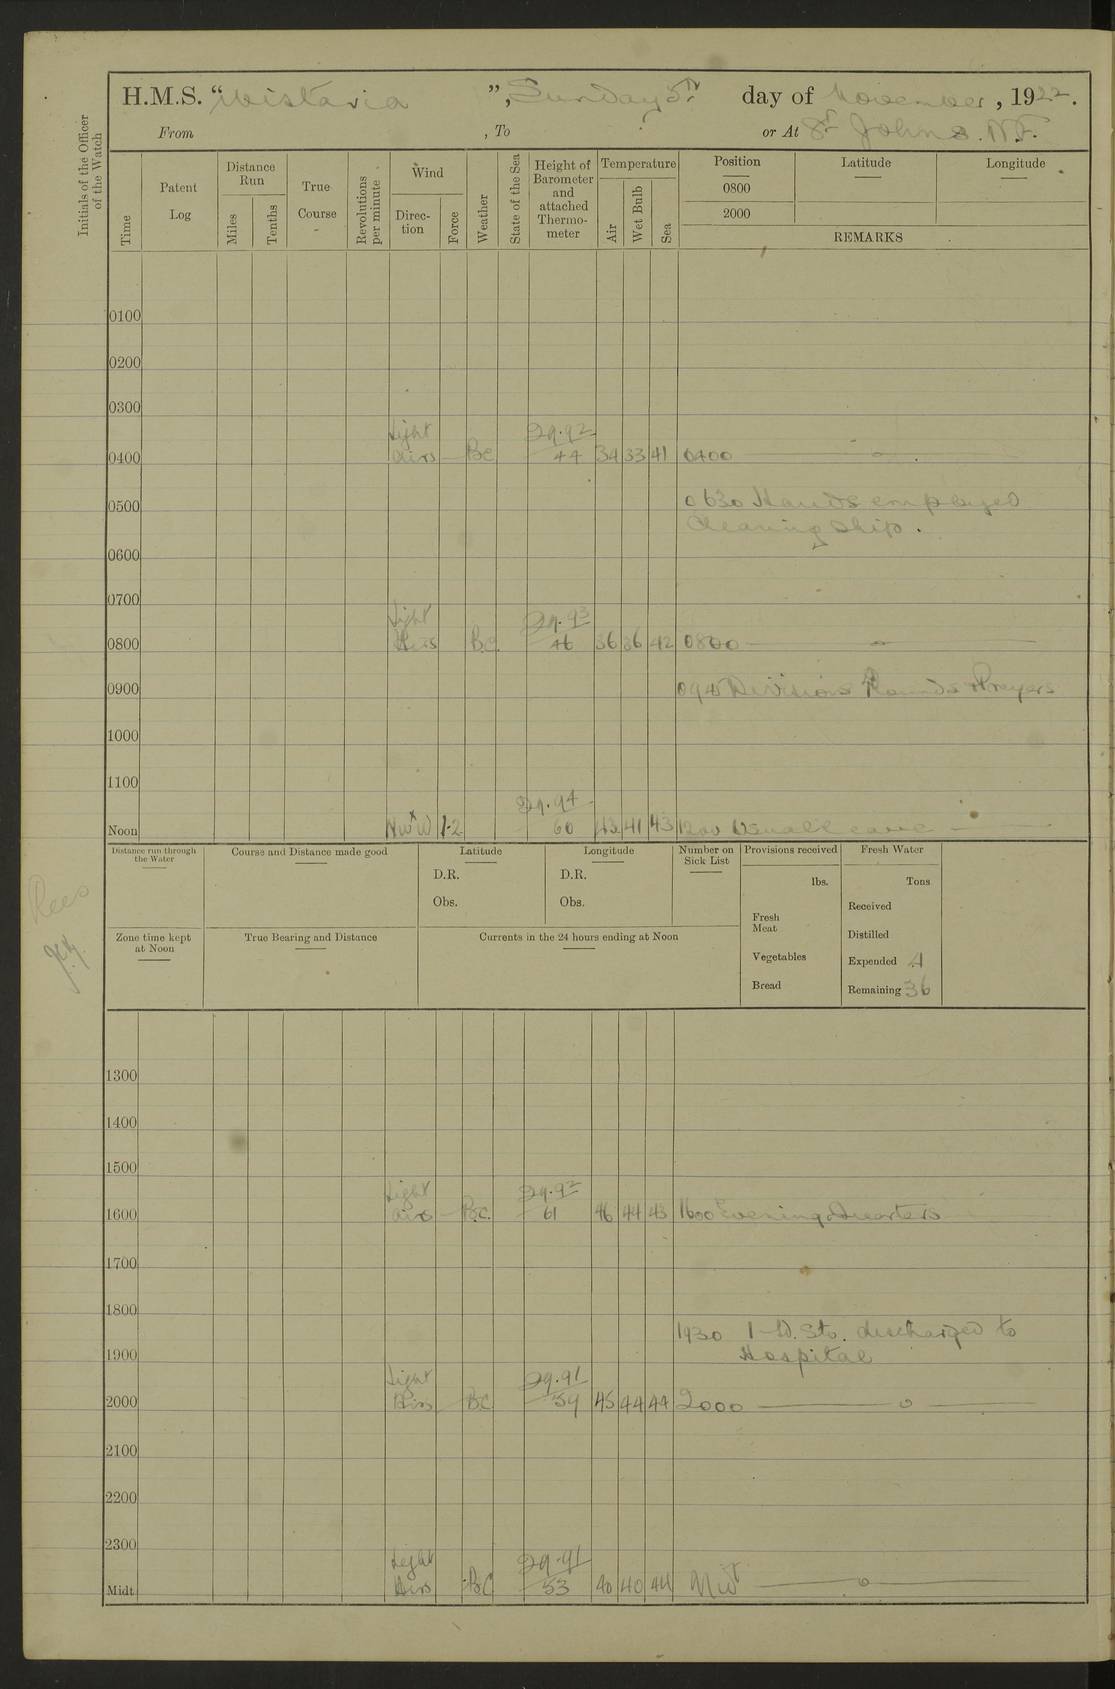 H.M.S. “Wistaria”, Sunday 5th day of November, 1922.
From , To or At St Johns. N.F.
Initials of the Officer of the Watch
Time
Patent Log
Distance Run
Miles
Tenths
True Course
Revolutions per minute
Wind
Direction
Force
Weather
State of the Sea
Height of Barometer and attached Thermometer
Temperature
Air
Wet Bulb
Sea
Position Latitude Longitude
0800
2000
REMARKS
0100
0200
0300
Light 29.92
0400 airs BC 44 34 33 41 0400
0500 0630 Hands employed
cleaning ship.
0600
0700
Light 29.93
0800 Airs B.C. 46 36 36 42 0800
0900 0945 Divisions Rounds & Prayers
1000
1100
29.94
Noon NWxW 1-2 60 43 41 43 1200 Usual leave
Distance run through the Water
Course and Distance made good
Latitude
D.R.
Obs.
Longitude
D.R.
Obs.
Number on Sick List
Provisions received
lbs.
Fresh Meat
Vegetables
Bread
Fresh Water
Tons
Received
Distilled
Expended 4
Remaining 36
Zone time kept at Noon
True Bearing and Distance
Currents in the 24 hours ending at Noon
1300
1400
1500
Light 29.92
1600 airs B.C. 61 46 44 43 1600 Evening Quarters
1700
1800
1930 1 Ld. Sto. discharged to
1900 Hospital
Light 29.91
2000 Airs BC 59 45 44 44 2000
2100
2200
2300
Light 29.91
Midt. Airs BC 53 40 40 44 Midt